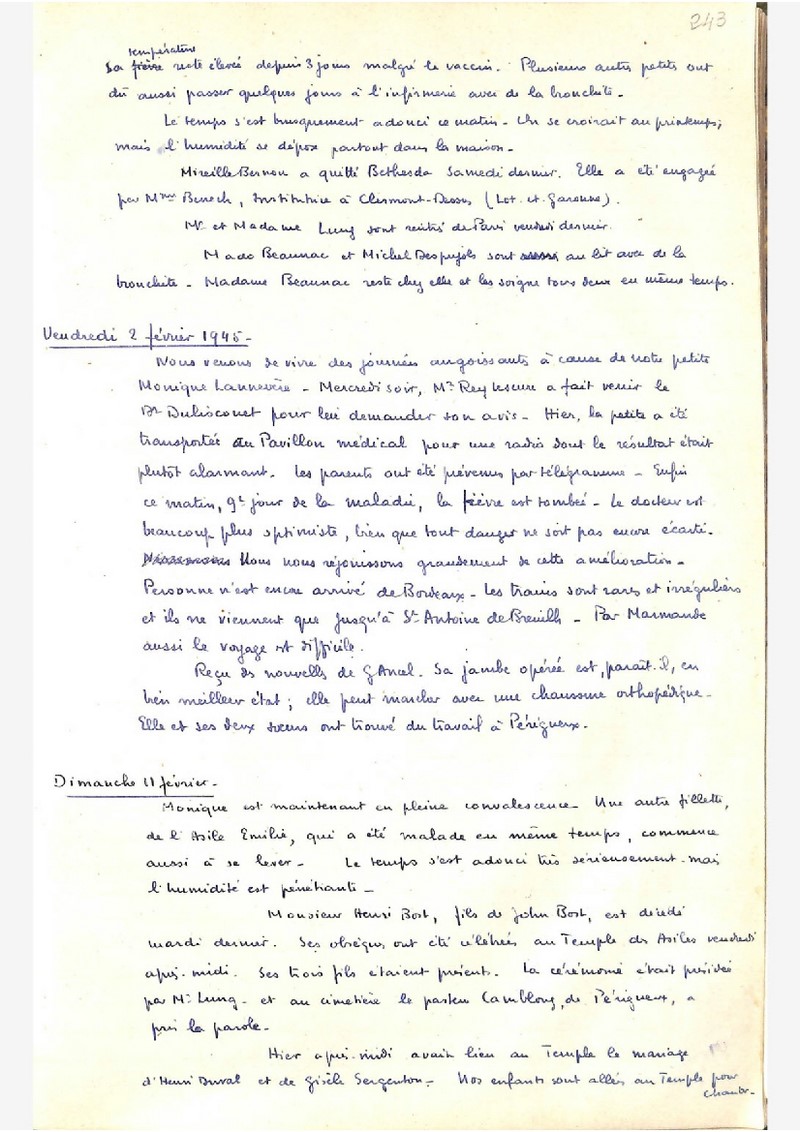 243
température
Sa fièvre reste élevée depuis 3 jours malgré le vaccin. Plusieurs autres petits ont
dû aussi passer quelques jours à l'infirmerie avec de la bronchite -
Le temps s'est brusquement adouci ce matin - On se croirait au printemps;
mais l'humidité se dépose partout dans la maison -
Mireille Bernon a quitté Bethesda Samedi dernier. Elle a été engagée
par Mme Benech, Institutrice à Clermont-Dessous (Lot. et. Garonne).
Mr et Madame Lung sont rentrés de Paris vendredi dernier.
Mado Beaunac et Michel Despujols sont au lit avec de la
bronchite - Madame Beaunac reste chez elle et les soigne tous deux en même temps.
Vendredi 2 février 1945 -
Nous venons de vivre des journées angoissants à cause de notre petite
Monique Lannevère - Mercredi soir, Mr Rey Lescure a fait venir le
Dr pour lui demander son avis - Hier, la petite a été
transportée au Pavillon médical pour une radio dont le résultat était
plutôt alarmant. Les parents ont été prévenus par télégramme - Enfin
ce matin, 9e jour de la maladie, la fièvre est tombée - Le docteur est
beaucoup plus optimiste, bien que tout danger ne soit pas encore écarté.
Nous nous réjouissons grandement de cette amélioration -
Personne n'est encore arrivé de Bordeaux - Les trains sont rares et irréguliers
et ils ne viennent que jusqu'à St Antoine de Breuilh - Par Marmande
aussi le voyage est difficile.
Reçu des nouvelles de G Ancel. Sa jambe opérée est, paraît-il, en
bien meilleur état; elle peut marcher avec une chaussure orthopédique -
Elle et ses deux sœurs ont trouvé du travail à Périgueux -
Dimanche 11 février -
Monique est maintenant en pleine convalescence - Une autre fillette,
de l'Asile Emilie, qui a été malade en même temps, commence
aussi à se lever - Le temps s'est adouci très sérieusement mais
l'humidité est pénétrante -
Monsieur Henri Bost, fils de John Bost, est décédé
mardi dernier. Ses obsèques ont été célébrées au Temple des Asiles vendredi
après-midi. Ses trois fils étaient présents. La cérémonie était présidée
par Mr Lung - et au cimetière le pasteur Camblong, de Périgueux, a
pris la parole -
Hier après-midi avait lieu au Temple le mariage
d'Henri Duval et de Gisèle Sergenton - Nos enfants sont allés au Temple pour
chanter -